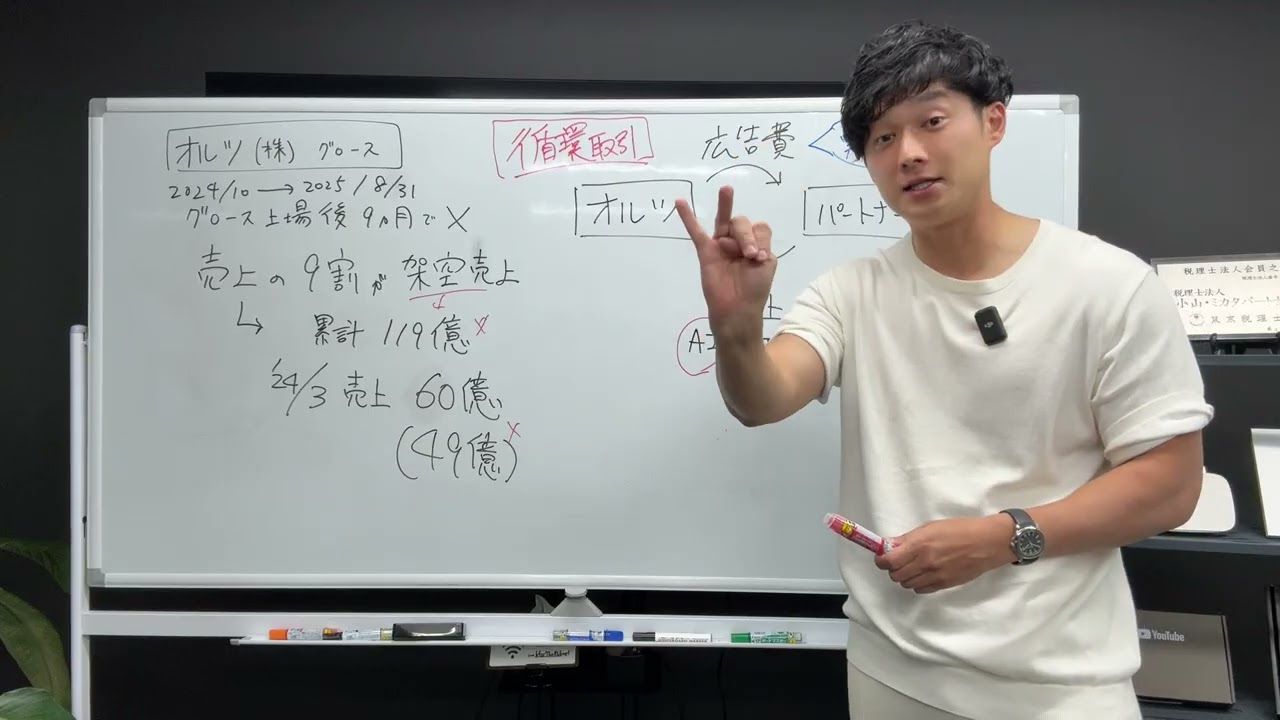 オルツ(株) グロース
2024/10→2025/8/31
グロース上場後9カ月で×
売上の9割が架空売上
↳ 累計119億×
'24/3 売上 60億
(49億)×
循環取引
広告費
オルツ
パートナー
上
税理士法人会員之
税理士法人
小山・ミカタパート
東京税理士
YouTube